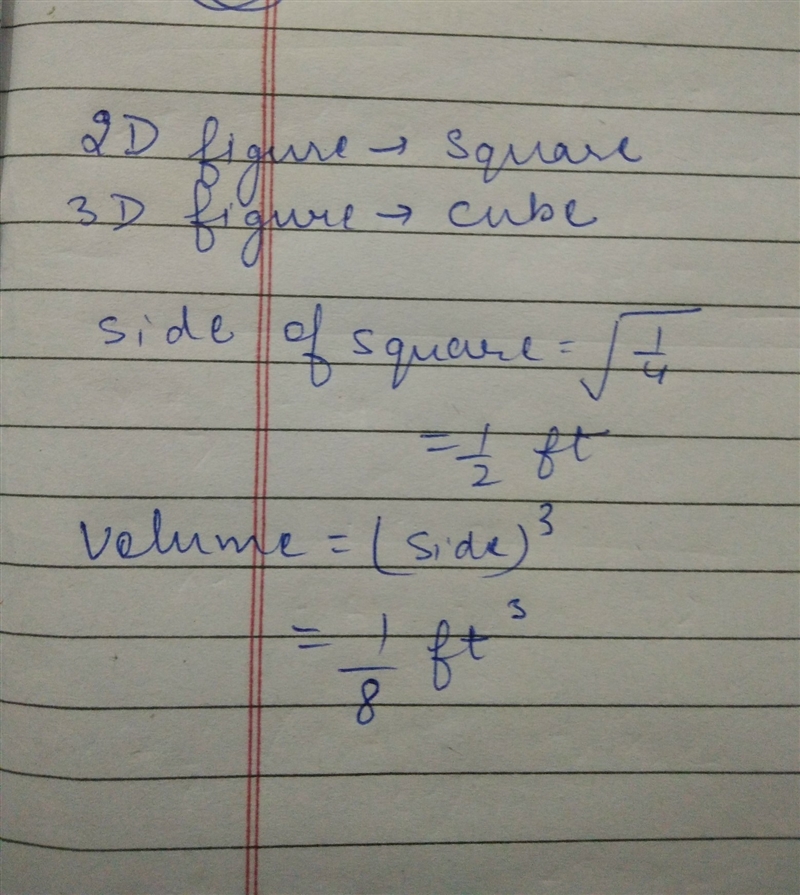 2D figure → square
3D figure → cube
side of square = √1/4
= 1/2 ft
Volume = (side)³
= 1/8 ft³